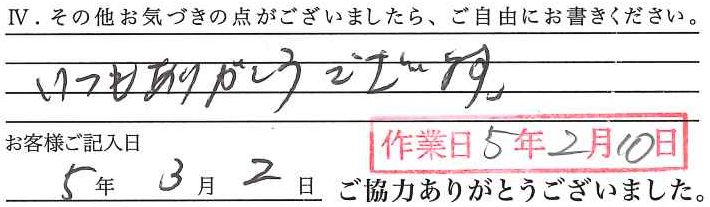 Ⅳ．その他お気づきの点がございましたら、ご自由にお書きください。
いつもありがとうございます。
お客様ご記入日
作業日5年2月10日
5年3月2日 ご協力ありがとうございました。